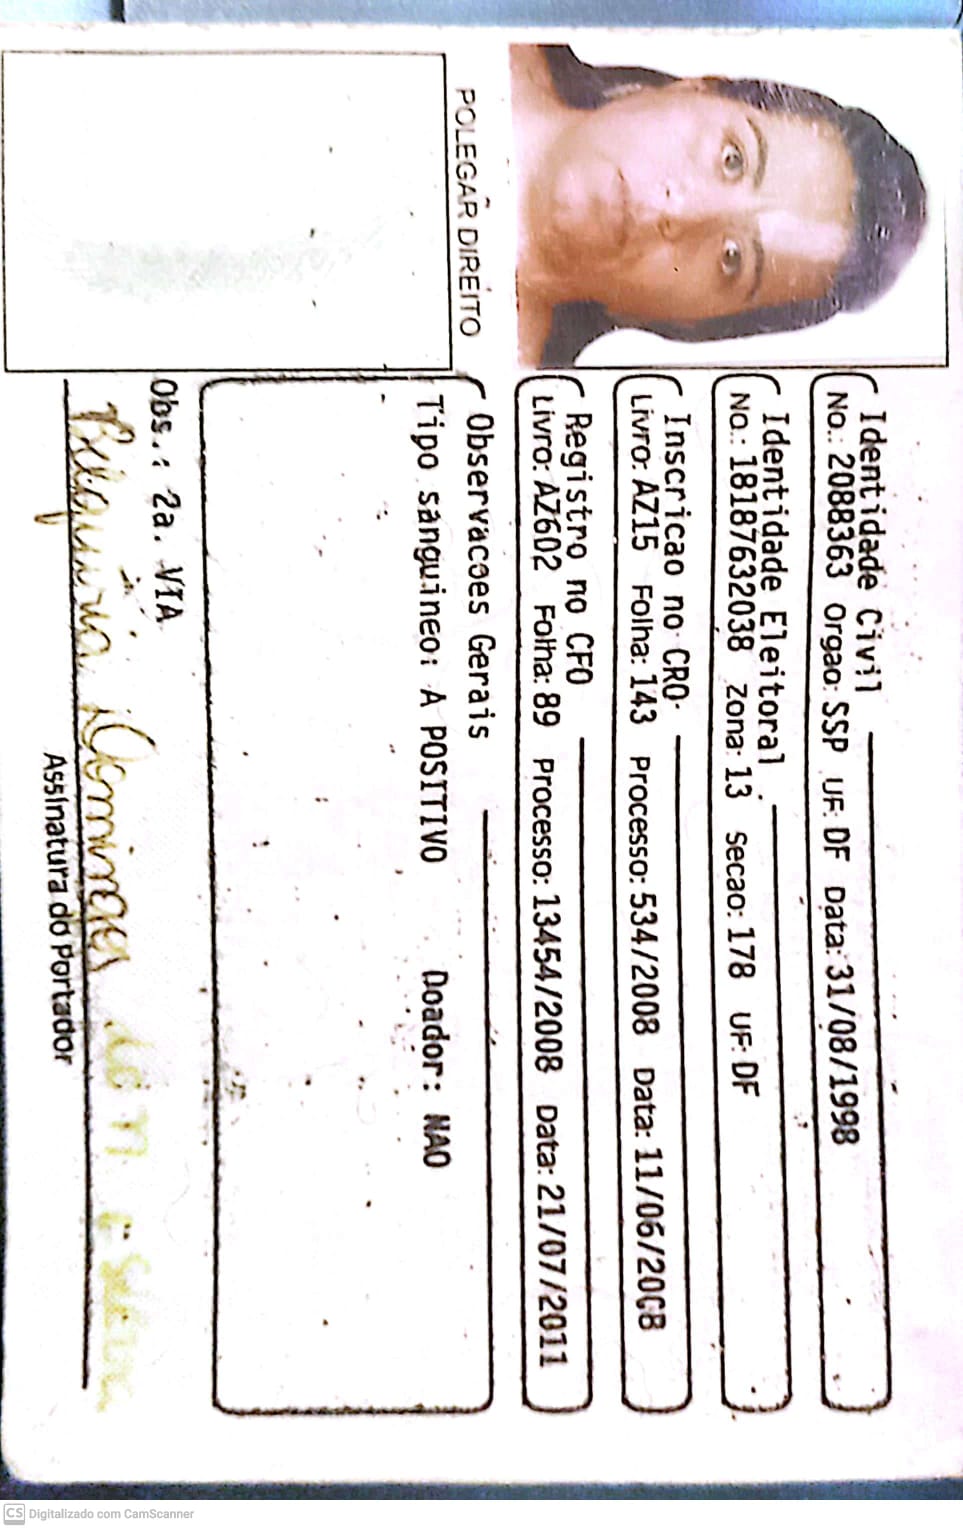 Identidade Civil
No.: 2088363 Orgao: SSP UF: DF Data: 31/08/1998
Identidade Eleitoral
No.: 18187632038 Zona: 13 Secao: 178 UF: DF
Inscricao no CRO
Livro: AZ15 Folha: 143 Processo: 534/2008 Data: 11/06/2008
Registro no CFO
Livro: AZ602 Folha: 89 Processo: 13454/2008 Data: 21/07/2011
POLEGAR DIREITO
Observacoes Gerais
Tipo sanguineo: A POSITIVO Doador: NAO
Obs.: 2a. VIA
Assinatura do Portador
CS Digitalizado com CamScanner